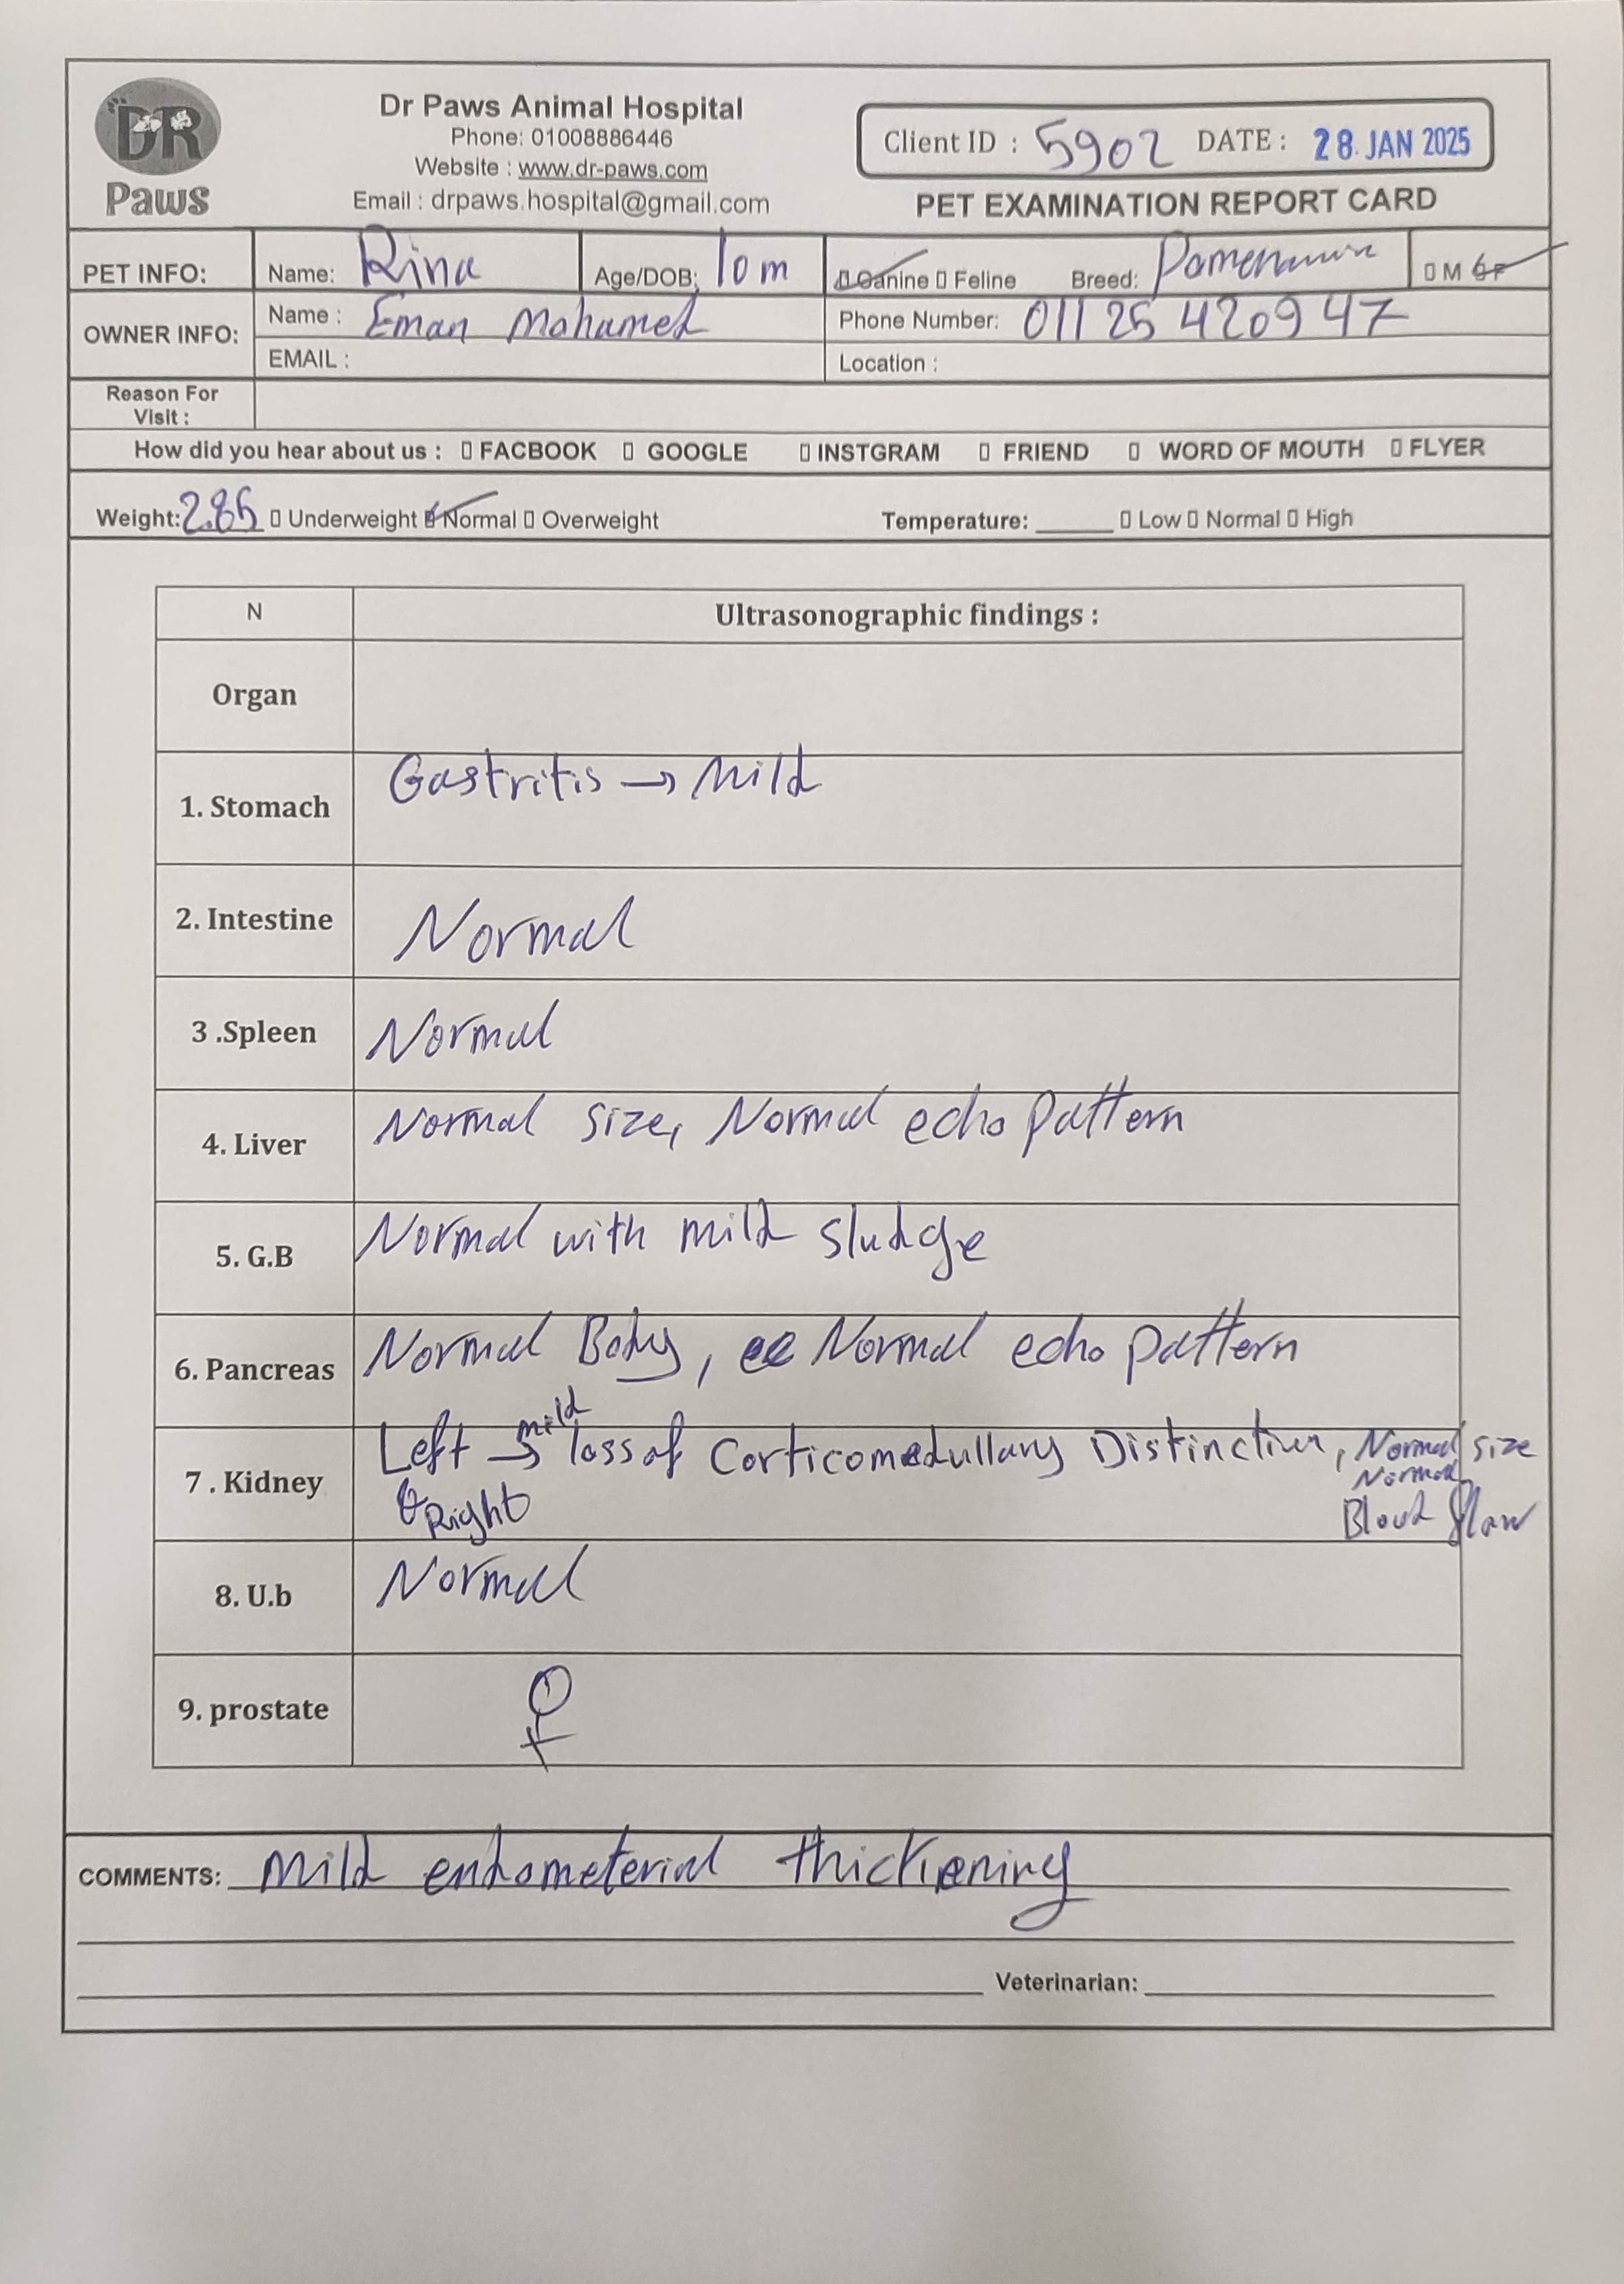 DR
Paws
Dr Paws Animal Hospital
Phone: 01008886446
Website : www.dr-paws.com
Email : drpaws.hospital@gmail.com
Client ID : 5902 DATE : 28 JAN 2025
PET EXAMINATION REPORT CARD
PET INFO: Name: Rina Age/DOB: 10 m Canine Feline Breed: Pomeranian M F
OWNER INFO: Name : Eman Mohamed Phone Number: 01125420947
EMAIL : Location :
Reason For
Visit :
How did you hear about us : FACBOOK GOOGLE INSTGRAM FRIEND WORD OF MOUTH FLYER
Weight: 2.85 Underweight Normal Overweight Temperature: ______ Low Normal High
N Ultrasonographic findings :
Organ
1. Stomach Gastritis → Mild
2. Intestine Normal
3 .Spleen Normal
4. Liver Normal size, Normal echo pattern
5. G.B Normal with mild sludge
6. Pancreas Normal Body, Normal echo pattern
7 . Kidney Left → mild loss of Corticomedullary Distinction, Normal size
Right Normal
Blood flow
8. U.b Normal
9. prostate ♀
COMMENTS: Mild endometerial thickening
Veterinarian: